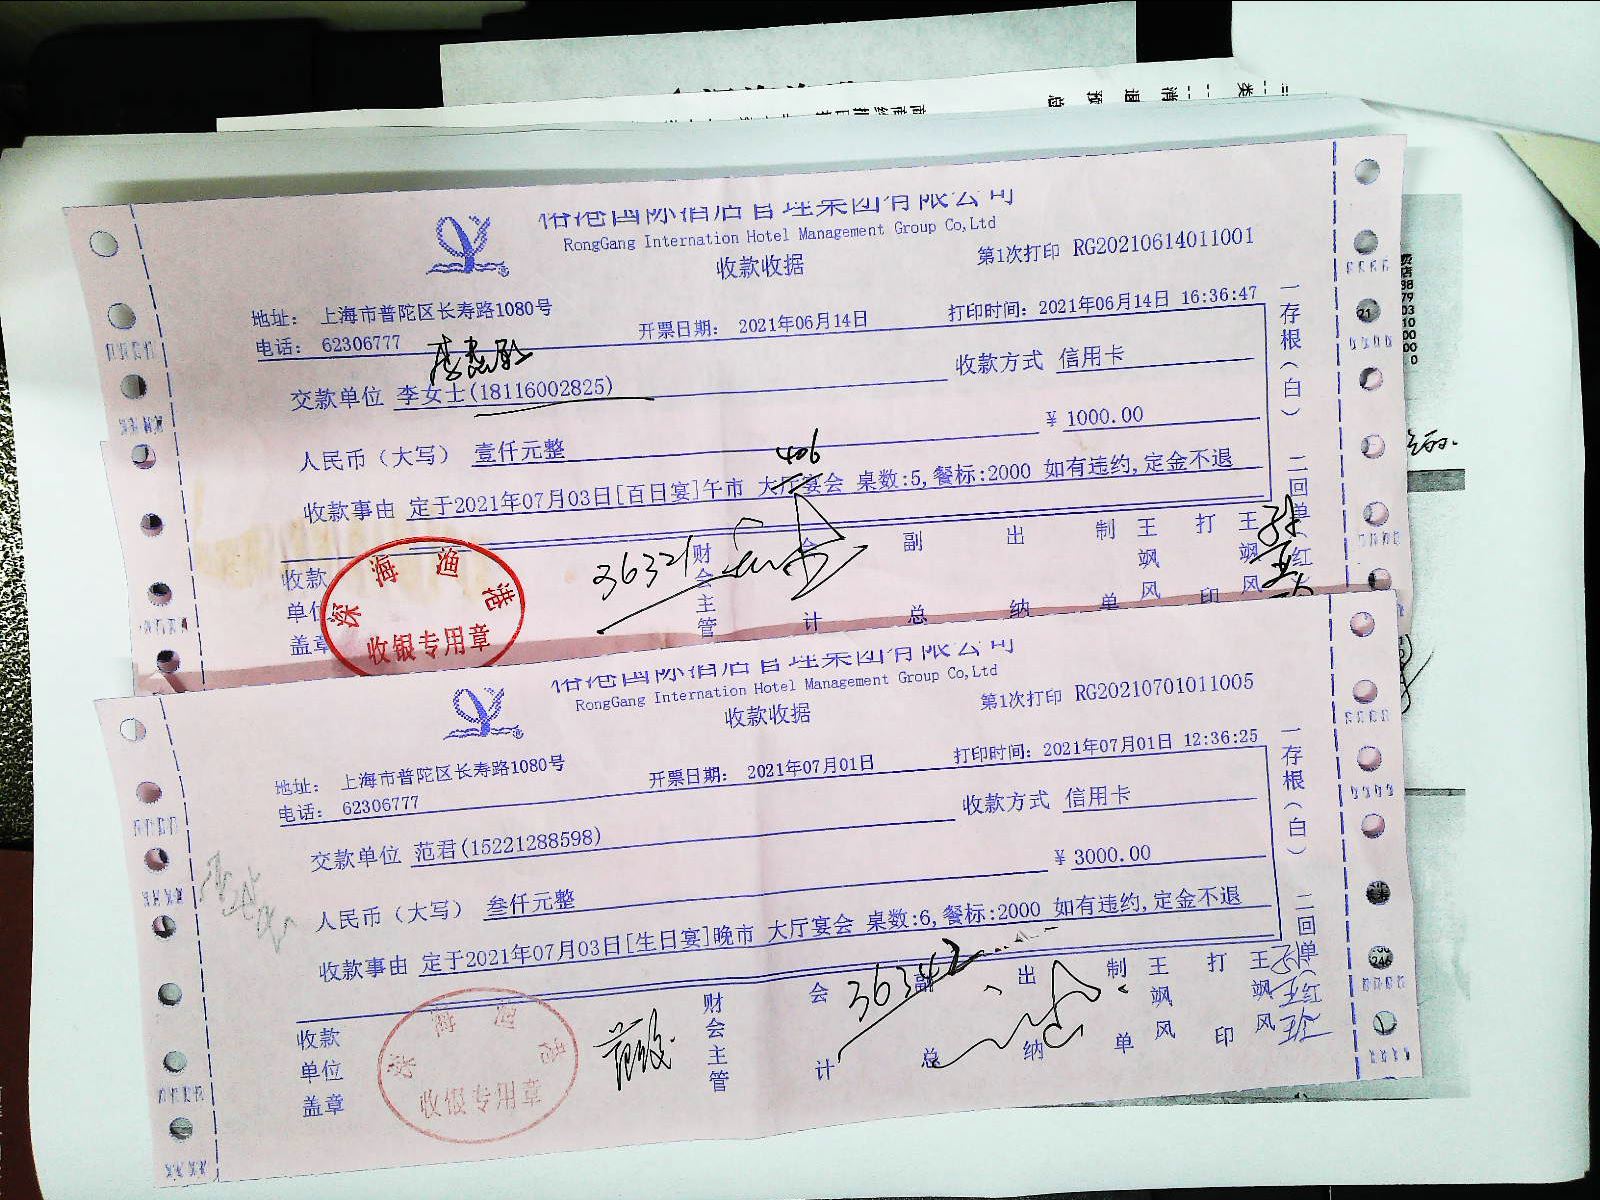 俗港国际酒店管理集团有限公司
RongGang Internation Hotel Management Group Co,Ltd
收款收据
第1次打印 RG20210614011001
地址: 上海市普陀区长寿路1080号
电话: 62306777
开票日期: 2021年06月14日
打印时间: 2021年06月14日 16:36:47
交款单位 李女士(18116002825)
收款方式 信用卡
人民币(大写) 壹仟元整
¥ 1000.00
406
收款事由 定于2021年07月03日[百日宴]午市 大厅宴会 桌数:5,餐标:2000 如有违约,定金不退
一存根(白) 二回单(红
收款单位盖章
深海渔港
收银专用章
36321
财会主管 会计 副总 出纳 制单 王飒风 打印 王飒风
俗港国际酒店管理集团有限公司
RongGang Internation Hotel Management Group Co,Ltd
收款收据
第1次打印 RG20210701011005
地址: 上海市普陀区长寿路1080号
电话: 62306777
开票日期: 2021年07月01日
打印时间: 2021年07月01日 12:36:25
交款单位 范君(15221288598)
收款方式 信用卡
人民币(大写) 叁仟元整
¥ 3000.00
收款事由 定于2021年07月03日[生日宴]晚市 大厅宴会 桌数:6,餐标:2000 如有违约,定金不退
一存根(白) 二回单(红
收款单位盖章
深海渔港
收银专用章
36342
财会主管 会计 副总 出纳 制单 王飒风 打印 王飒风